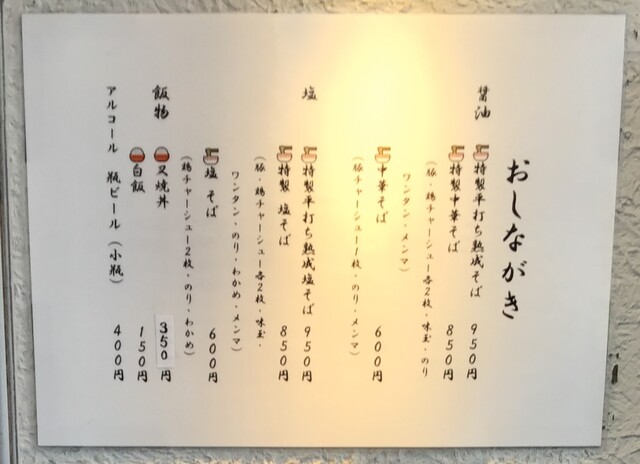 おしながき
醤油
特製平打ち熟成そば 950円
特製中華そば 850円
(豚・鶏チャーシュー各2枚・味玉・のり
ワンタン・メンマ)
中華そば 600円
(豚チャーシュー1枚・のり・メンマ)
塩
特製平打ち熟成塩そば 950円
特製 塩そば 850円
(豚・鶏チャーシュー各2枚・味玉・
ワンタン・のり・わかめ・メンマ)
塩 そば 600円
(鶏チャーシュー2枚・のり・わかめ)
飯物
叉焼丼 350円
白飯 150円
アルコール 瓶ビール (小瓶) 400円